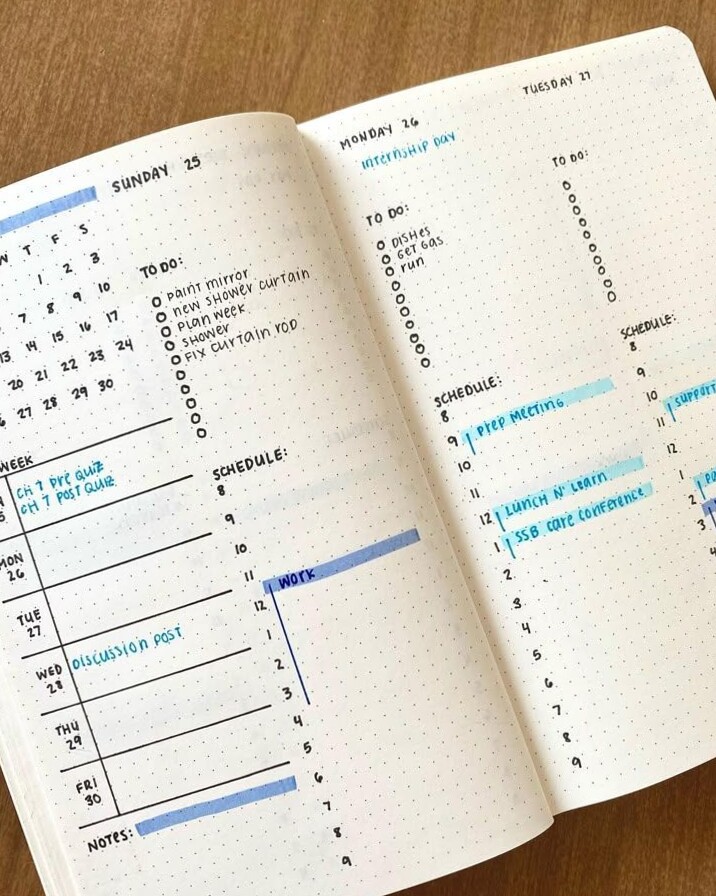 SUNDAY 25
W T F S
1 2 3
7 8 9 10
13 14 15 16 17
20 21 22 23 24
27 28 29 30
WEEK
CH 7 PRE QUIZ
CH 7 POST QUIZ
MON
26
TUE
27
WED
28
DISCUSSION POST
THU
29
FRI
30
NOTES:
TO DO:
PAINT MIRROR
NEW SHOWER CURTAIN
PLAN WEEK
SHOWER
FIX CURTAIN ROD
SCHEDULE:
8
9
10
11
WORK
12
1
2
3
4
5
6
7
8
9
MONDAY 26
INTERNSHIP DAY
TO DO:
DISHES
GET GAS
RUN
SCHEDULE:
8
9 PREP MEETING
10
11
12 LUNCH N' LEARN
1 SSB CARE CONFERENCE
2
3
4
5
6
7
8
9
TUESDAY 27
TO DO:
SCHEDULE:
8
9
10
SUPPORT
11
12
1
2
3
4